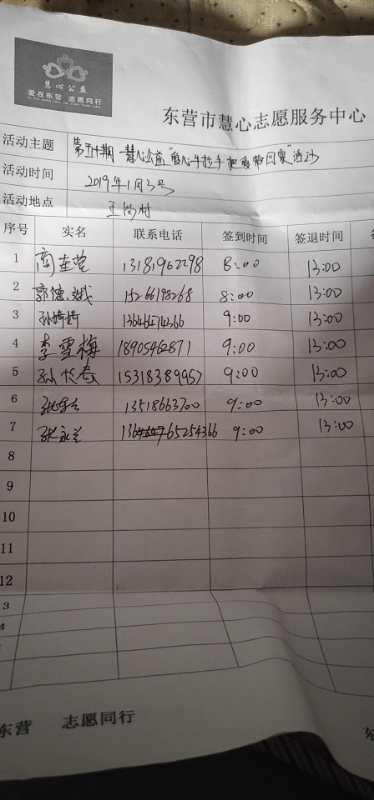 慧心公益
爱在东营 志愿同行
东营市慧心志愿服务中心
活动主题 第五十期 慧心公益"爱心手拉手 把爱带回家"活动
活动时间 2019年1月3号
活动地点 王岗村
序号 实名 联系电话 签到时间 签退时间
1 13181962298 8:00 13:00
2 郭德斌 15266198268 8:00 13:00
3 孙婷婷 9:00 13:00
4 李雪梅 18905462871 9:00 13:00
5 孙长春 15318389957 9:00 13:00
6 13518663700 9:00 13:00
7 张永兰 9:00 13:00
8
9
10
11
12
3
4
东营 志愿同行
东